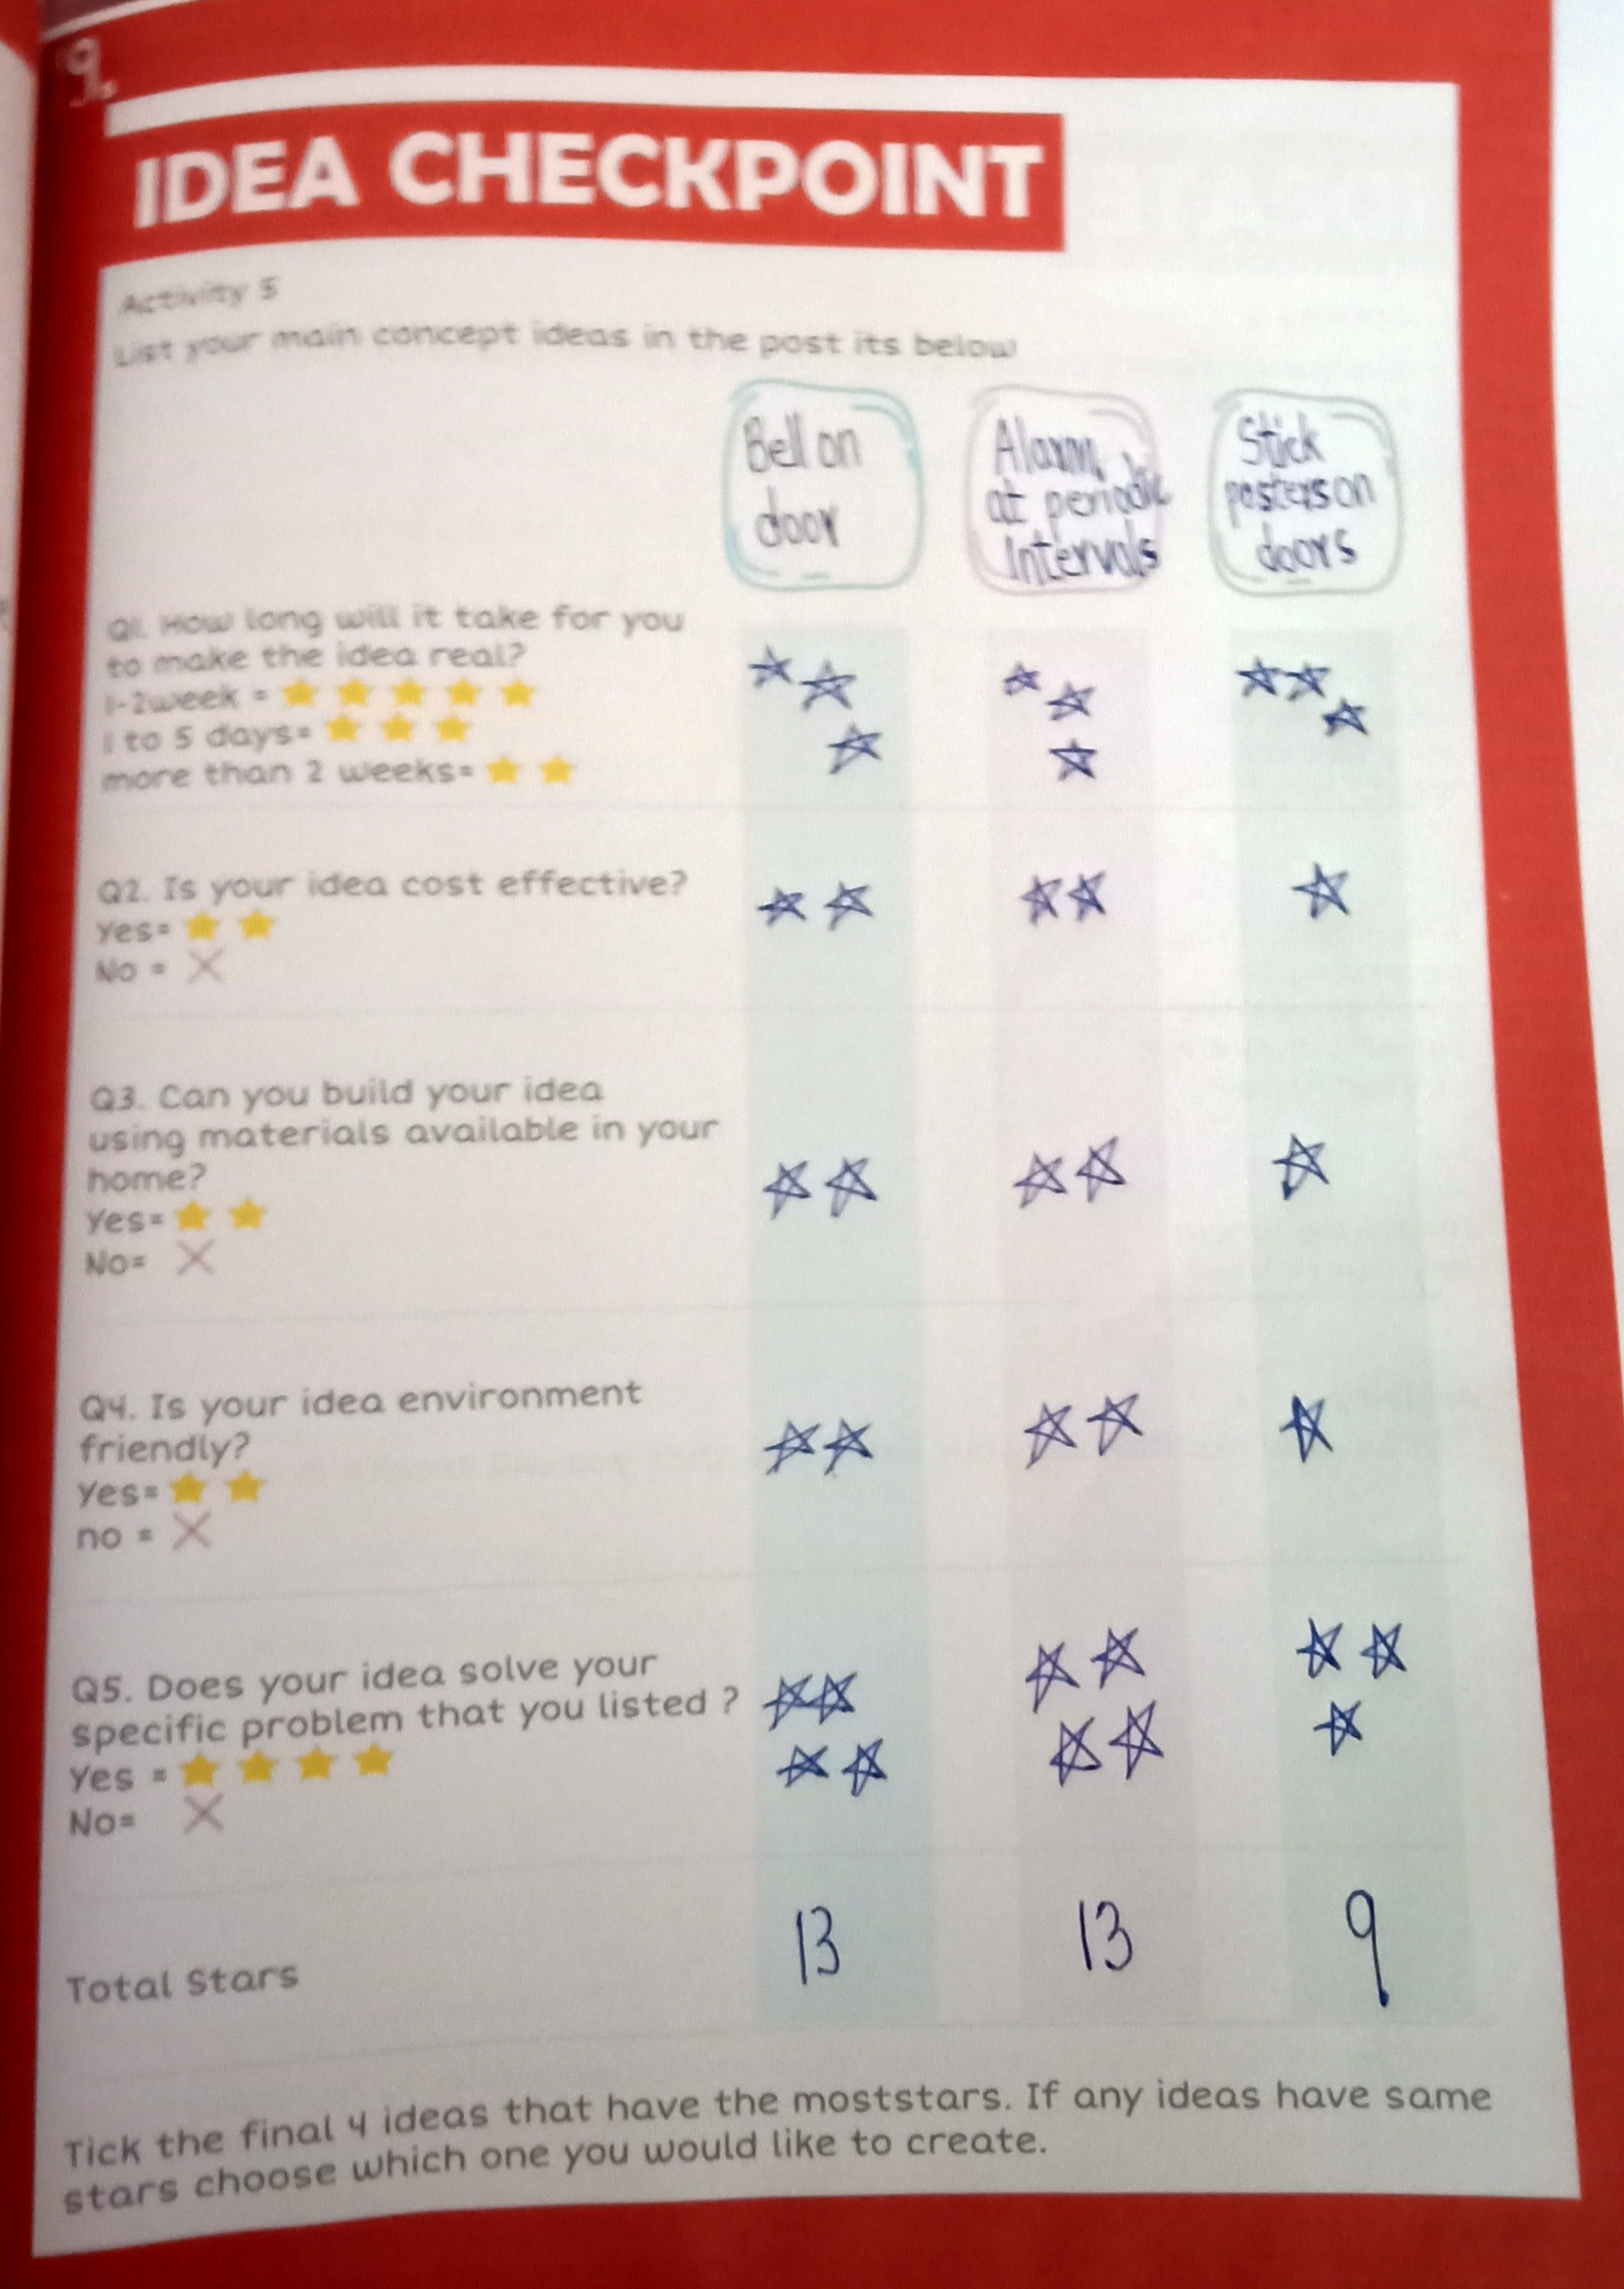 9.
IDEA CHECKPOINT
Activity 5
List your main concept ideas in the post its below
Bell on
door
Alarm
at periodic
Intervals
Stick
posters on
doors
Q1. How long will it take for you
to make the idea real?
1-2week =
1 to 5 days=
more than 2 weeks=
Q2. Is your idea cost effective?
Yes=
No =
Q3. Can you build your idea
using materials available in your
home?
Yes=
No=
Q4. Is your idea environment
friendly?
Yes=
no =
Q5. Does your idea solve your
specific problem that you listed ?
Yes =
No=
Total Stars
13
13
9
Tick the final 4 ideas that have the moststars. If any ideas have same
stars choose which one you would like to create.